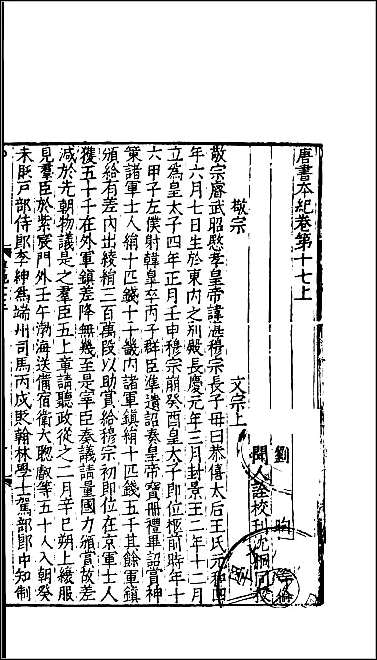 唐書本紀卷第十七上
劉昫
聞人詮校刊沈桐同校
敬宗 文宗上
敬宗睿武昭愍孝皇帝諱湛穆宗長子母曰恭僖太后王氏元和四
年六月七日生於東內之別殿長慶元年三月封景王二年十二月
立為皇太子四年正月壬申穆宗崩癸酉皇太子即位柩前時年十
六甲子左僕射韓皋卒丙子群臣準遺詔奏皇帝寶冊禮畢詔賞神
策諸軍士人絹十匹錢十千畿內諸軍鎮絹十匹錢五千其餘軍鎮
頒給有差內出綾絹三百萬段以助賞給穆宗初即位在京軍士人
獲五十千在外軍鎮差降無幾至是宰臣奏議請量國力頒賞故差
減於先朝物議是之羣臣五上章請聽政從之二月辛巳朔上縗服
見羣臣於紫宸門外壬午渤海送備宿衛大聰叡等五十人入朝癸
未貶戶部侍郎李紳為端州司馬丙戌貶翰林學士駕部郎中知制